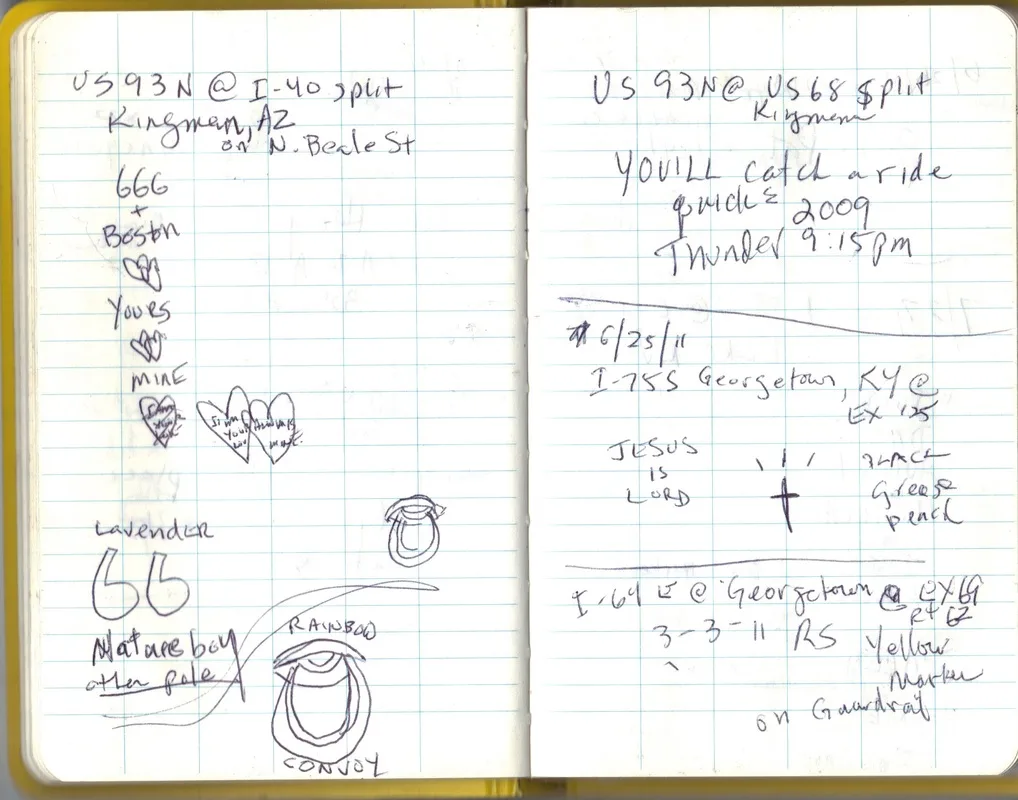 US 93N @ I-40 split
Kingman, AZ
on N. Beale St
666
+
Boston
Yours
MINE
Lavender
66
Natureboy
other pole
RAINBOW
CONVOY
US 93N @ US68 split
Kingman
YOU'LL catch a ride
quick
2009
Thunder 9:15pm
6/25/11
I-75S Georgetown, KY @
EX 125
JESUS
IS
LORD
BLACK
Grease
pencil
I-64 E @ Georgetown @ EX 69
RT 62
3-3-11 RS
Yellow
Marker
on Gaurdrail